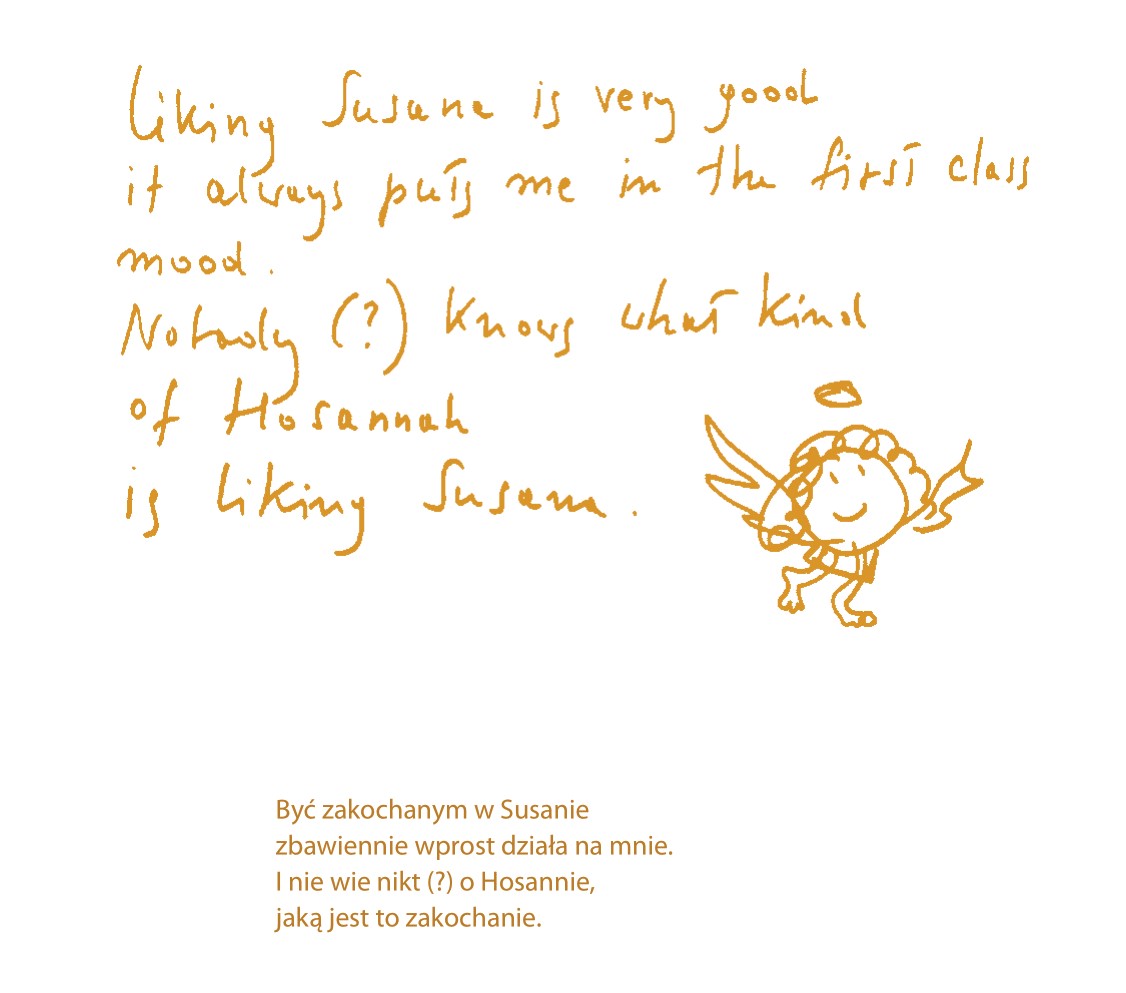 Liking Susana is very good
it always puts me in the first class
mood.
Nobody (?) knows what kind
of Hosannah
is liking Susana.
Być zakochanym w Susanie
zbawiennie wprost działa na mnie.
I nie wie nikt (?) o Hosannie,
jaką jest to zakochanie.